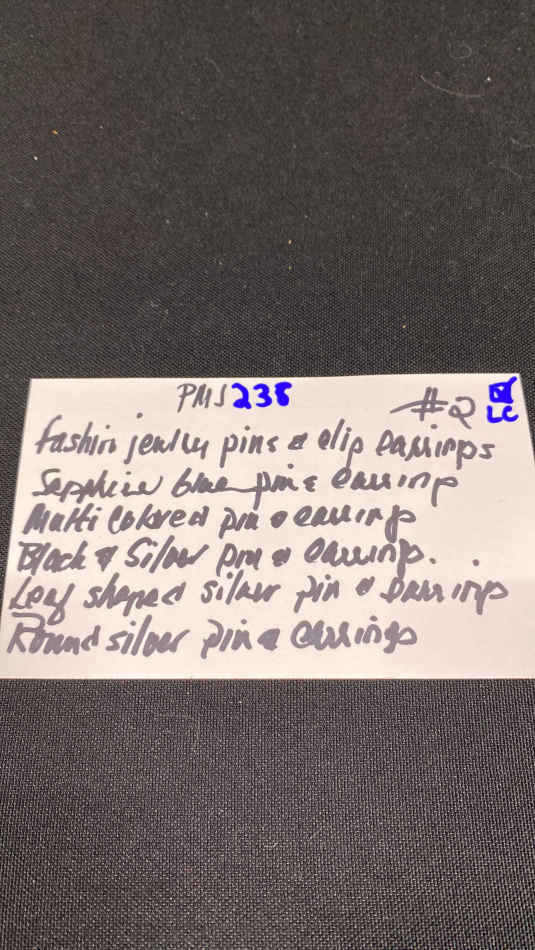 PMJ 238 #2 LC
fashion jewlry pins & clip Earrings
Sapphire blue pin & earring
Multi Colored pin & earrings
Black & Silver pin & Earring.
Leaf shaped silver pin & Earrings
Round silver pin & earrings